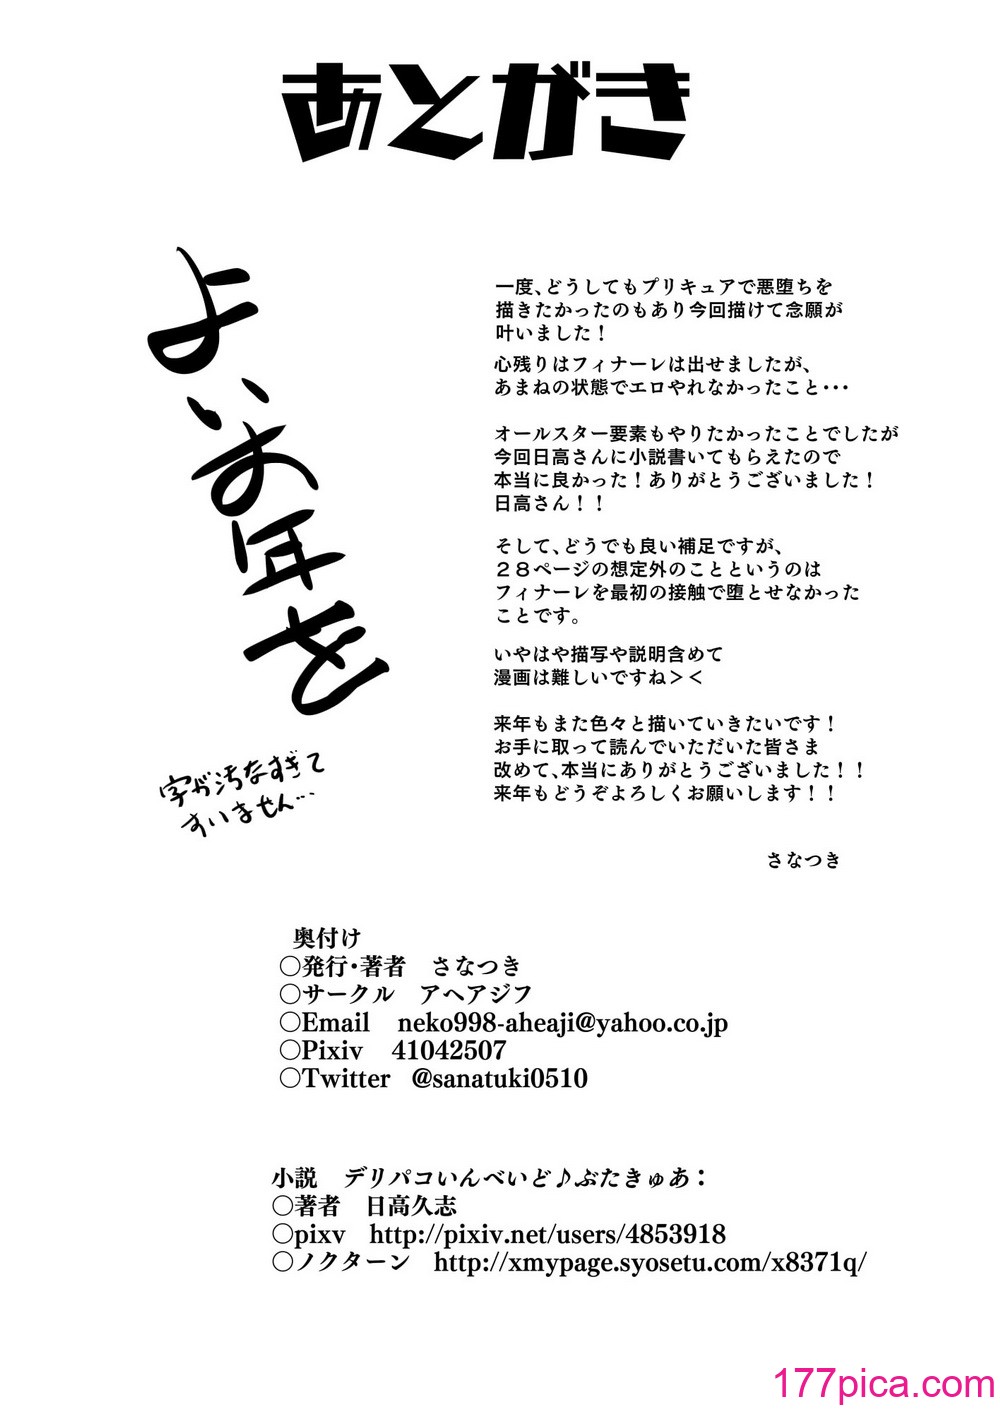 あとがき
よいお年を
字が汚なすぎて
すいません…
一度、どうしてもプリキュアで悪堕ちを
描きたかったのもあり今回描けて念願が
叶いました！
心残りはフィナーレは出せましたが、
あまねの状態でエロやれなかったこと･･･
オールスター要素もやりたかったことでしたが
今回日高さんに小説書いてもらえたので
本当に良かった！ありがとうございました！
日高さん！！
そして、どうでも良い補足ですが、
２８ページの想定外のことというのは
フィナーレを最初の接触で堕とせなかった
ことです。
いやはや描写や説明含めて
漫画は難しいですね＞＜
来年もまた色々と描いていきたいです！
お手に取って読んでいただいた皆さま
改めて、本当にありがとうございました！！
来年もどうぞよろしくお願いします！！
さなつき
奥付け
○発行･著者　さなつき
○サークル　アヘアジフ
○Email　neko998-aheaji@yahoo.co.jp
○Pixiv　41042507
○Twitter　@sanatuki0510
小説　デリパコいんべいど♪ぶたきゅあ：
○著者　日高久志
○pixv　http://pixiv.net/users/4853918
○ノクターン　http://xmypage.syosetu.com/x8371q/
177pica.com